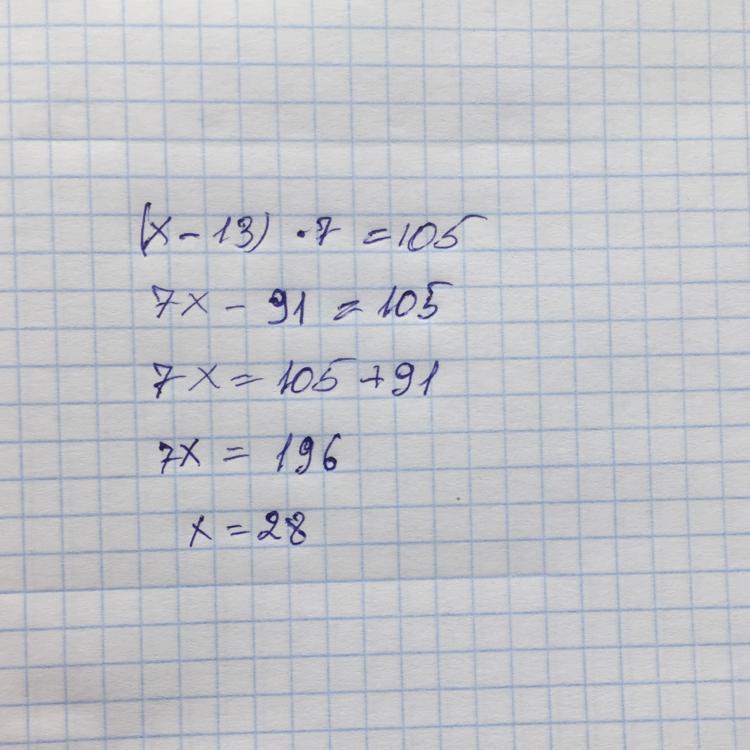 (x - 13) · 7 = 105
7x - 91 = 105
7x = 105 + 91
7x = 196
x = 28